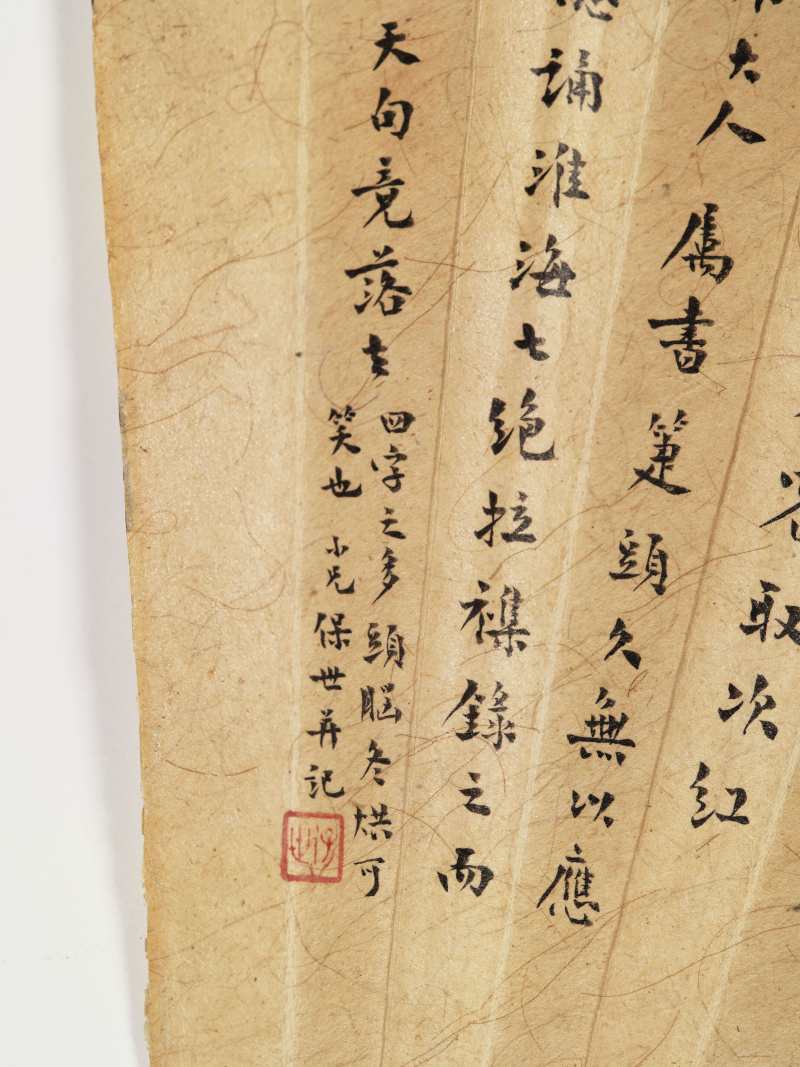 取次紅
大人属書箑頭久無以應
誦淮海七絕拉襍錄之而
天句竟落去
四字之多頭腦冬烘可
笑也 小兄保世并記